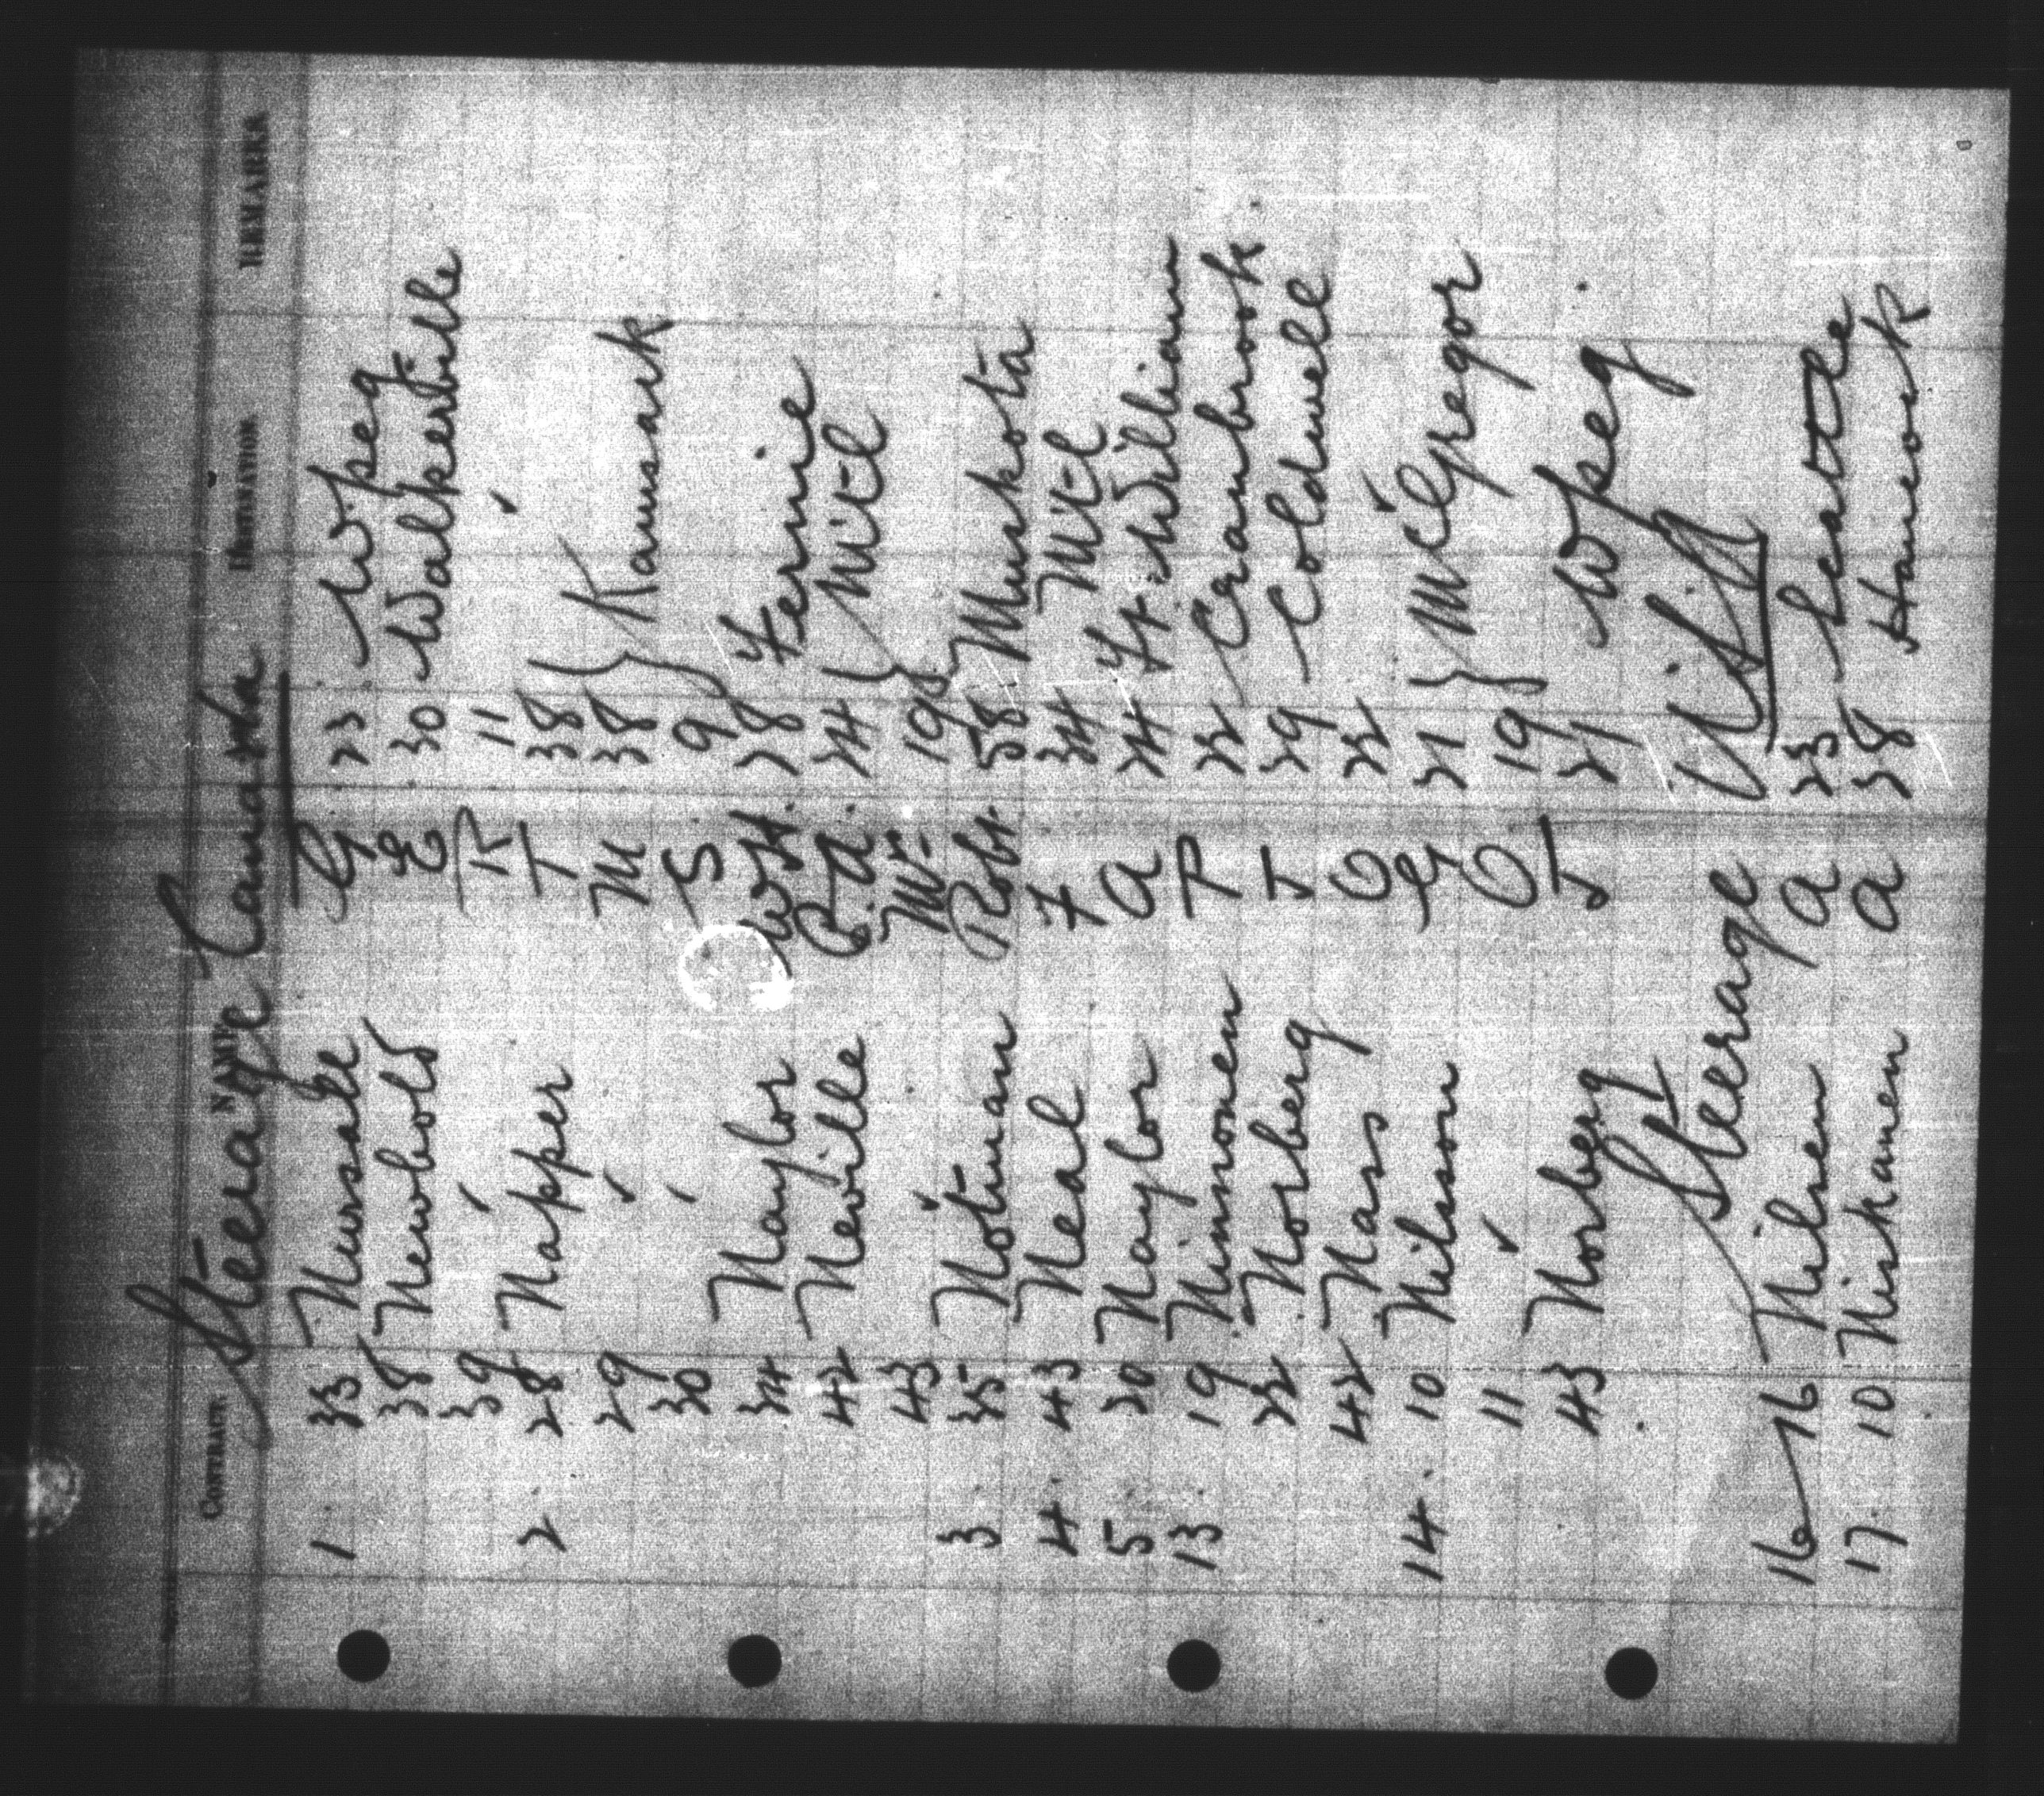 CONTRACT. NAME DESTINATION REMARKS
Steerage Canada
1 33 Nursall G 23 Wpeg
38 Newbold E 30 Walkerville
39 " R 11 "
2 28 Napper T 38
29 " M 38 } Kamsack
30 " S 9
34 Naylor Wm. 28 Fernie
42 Neville R.A. 24 } Mtl
43 " Mrs 19
3 35 Notman Robt. 58 Muskota
4 43 Neal F 34 Mtl
5 20 Naylor A 24 Ft. William
13 19 Ninnonen P 22 Cranbrook
22 Norberg J 29 Coldwell
42 Nass O 22 "
14 10 Nilsson G 21 } McGregor
11 " O 19
43 Norberg J 21 Wpeg
Steerage USA
16 16 Nilsen A 23 Seattle
17 10 Niskanen A 28 Hancock